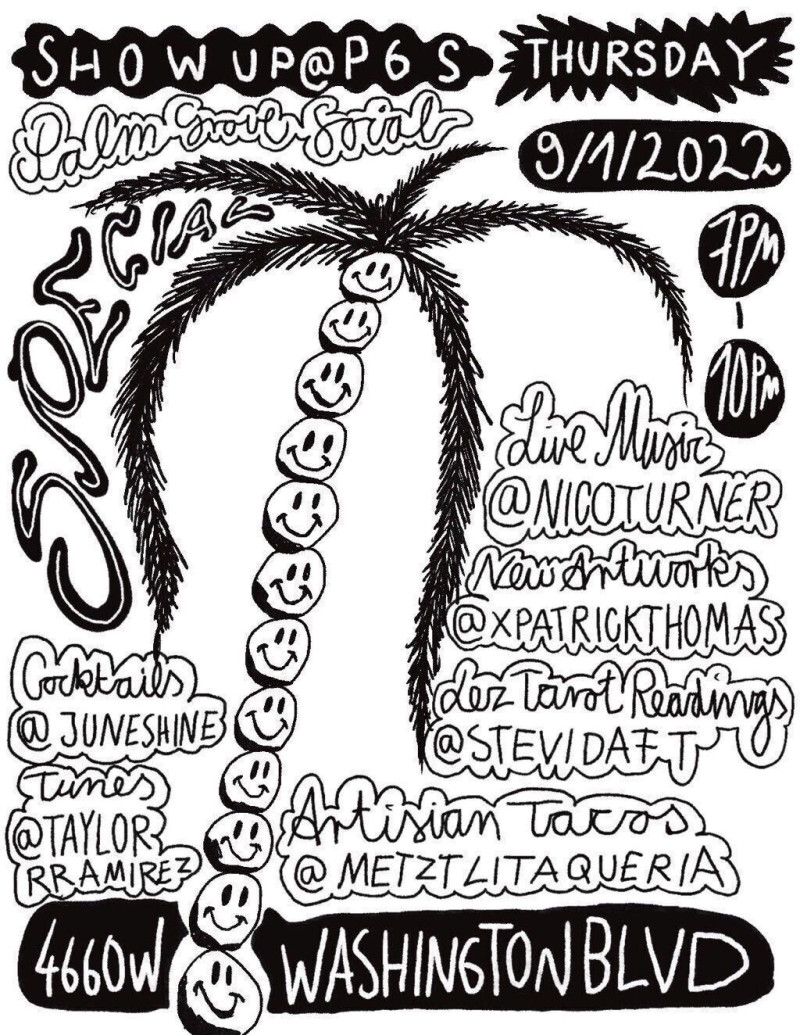 SHOW UP@PGS
THURSDAY
Palm Grove Social
9/1/2022
SPECIAL
7PM
-
10PM
Live Music
@NICOTURNER
New Artworks
@XPATRICKTHOMAS
Lez Tarot Readings
@STEVIDAFT
Cocktails
@JUNESHINE
Tunes
@TAYLOR
RRAMIREZ
Artisian Tacos
@METZTLITAQUERIA
4660W WASHINGTON BLVD